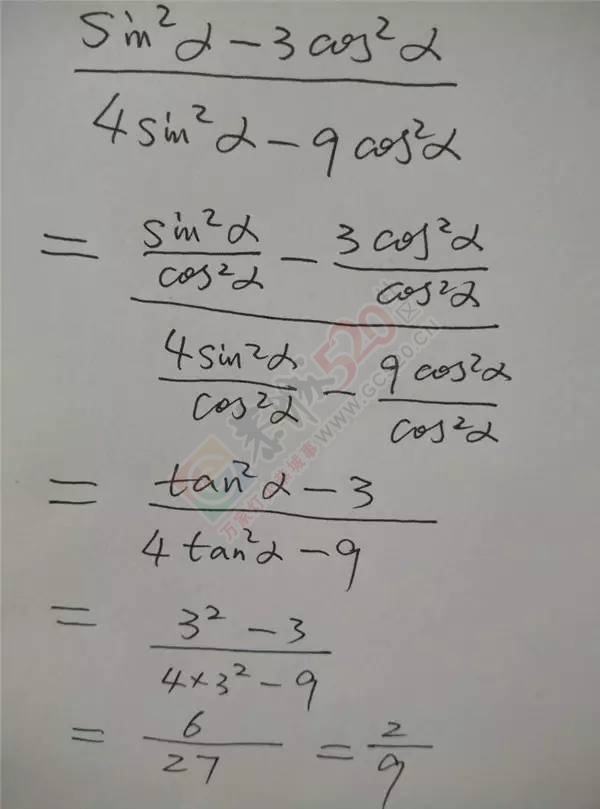 sin²α - 3cos²α
4sin²α - 9cos²α
= sin²α/cos²α - 3cos²α/cos²α
4sin²α/cos²α - 9cos²α/cos²α
= tan²α - 3
4tan²α - 9
= 3² - 3
4×3² - 9
= 6/27 = 2/9
520
WWW.GC520.CN